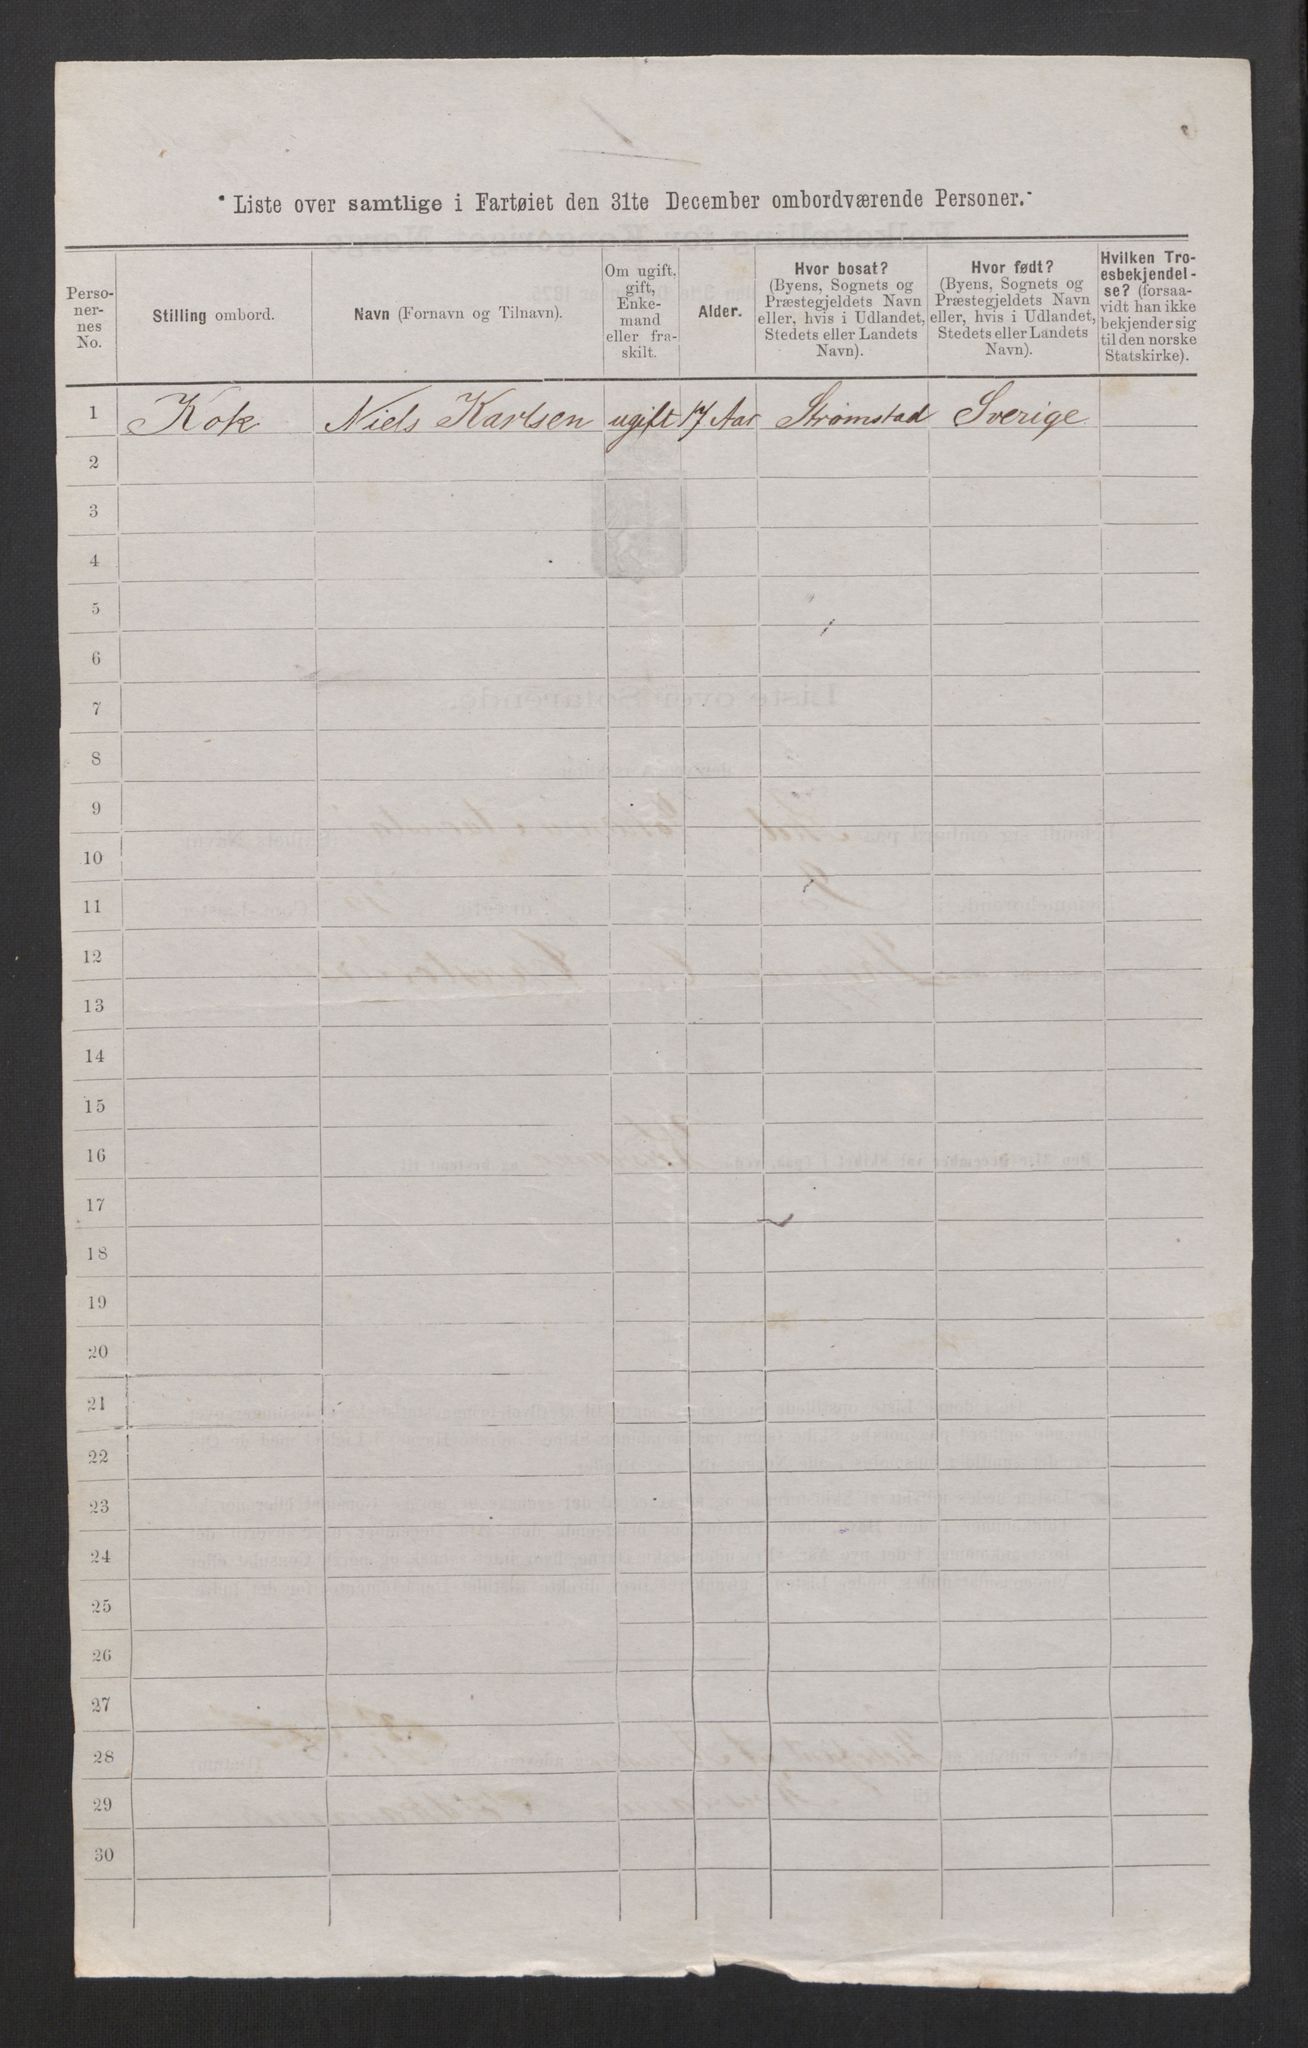 Liste over samtlige i Fartøiet den 31te December ombordværende Personer.
Perso-
ner-
nes
No.
Stilling ombord.
Navn (Fornavn og Tilnavn).
Om ugift,
gift,
Enke-
mand
eller fra-
skilt.
Alder.
Hvor bosat?
(Byens, Sognets og
Præstegjeldets Navn
eller, hvis i Udlandet,
Stedets eller Landets
Navn).
Hvor født?
(Byens, Sognets og
Præstegjeldets Navn
eller, hvis i Udlandet,
Stedets eller Landets
Navn).
Hvilken Tro-
esbekjendel-
se? (forsaa-
vidt han ikke
bekjender sig
til den norske
Statskirke).
1 Kok Niels Karlsen ugift 17 Aar Strømstad Sverige
2
3
4
5
6
7
8
9
10
11
12
13
14
15
16
17
18
19
20
21
22
23
24
25
26
27
28
29
30